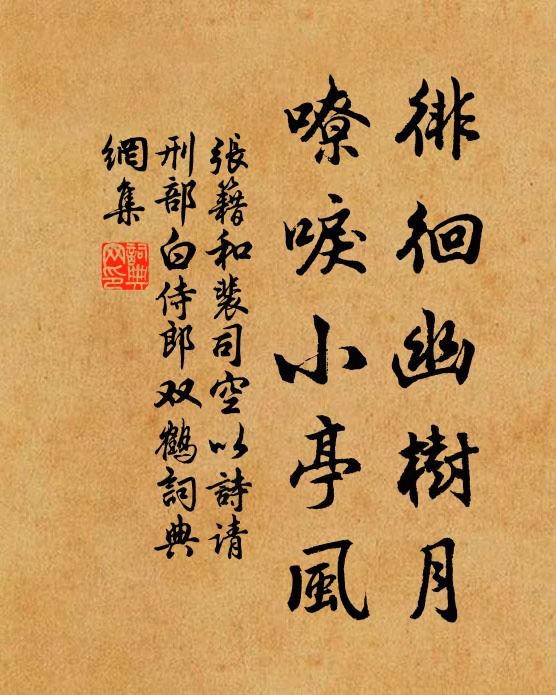 徘徊幽樹月
嘹唳小亭風
張籍和裴司空以詩请
刑部白侍郎双鹤詞典
網集
詞典
网印